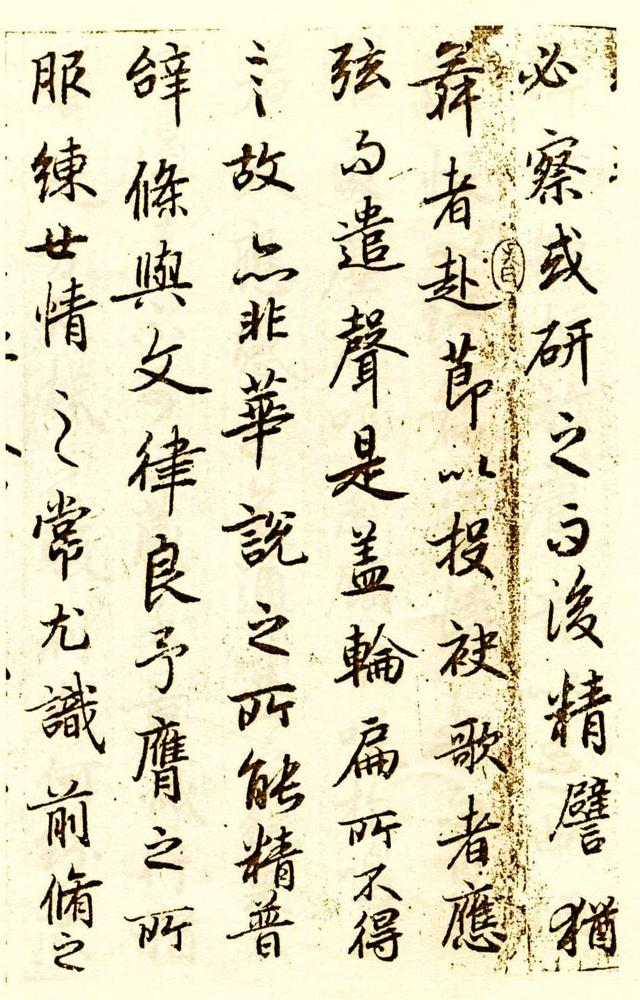 必察或研之而後精譬猶
舞者赴節以投袂歌者應
弦而遣聲是盖輪扁所不得
言故亦非華說之所能精普
辭條與文律良予膺之所
服練世情之常尤識前脩之